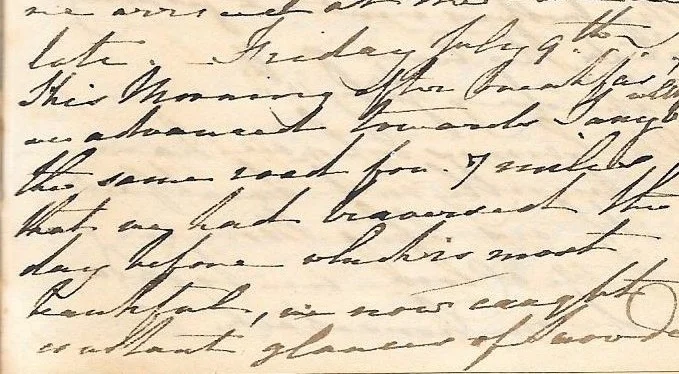 we arrived at the
late. Friday July 9th
This Morning after breakfast
we advanced towards Tany
the same road for 7 miles
that we had traversed the
day before which is most
beautiful, we now caught
constant glances of wooded